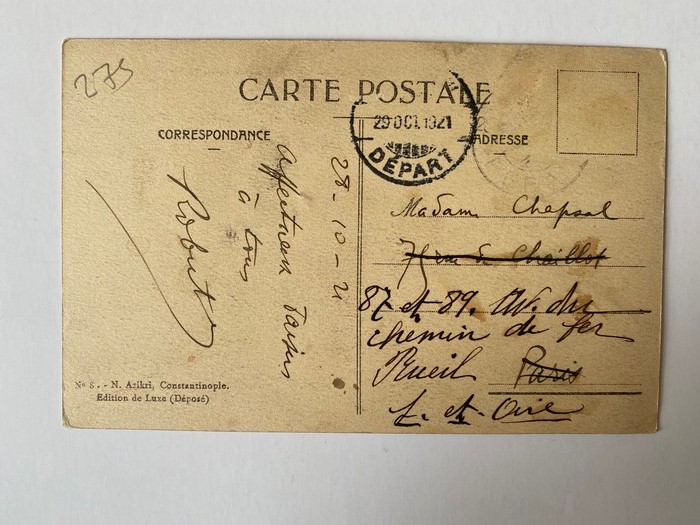 275
CARTE POSTALE
CORRESPONDANCE
ADRESSE
29 OCT. 1921
DÉPART
28-10-21
Affectueux baisers
à tous
Robert
Madame Chapsal
7 rue de Chaillot
87 et 89. Av. du
chemin de fer
Rueil Paris
S.-et-Oise
No 8. - N. Azikri, Constantinople.
Edition de Luxe (Déposé)